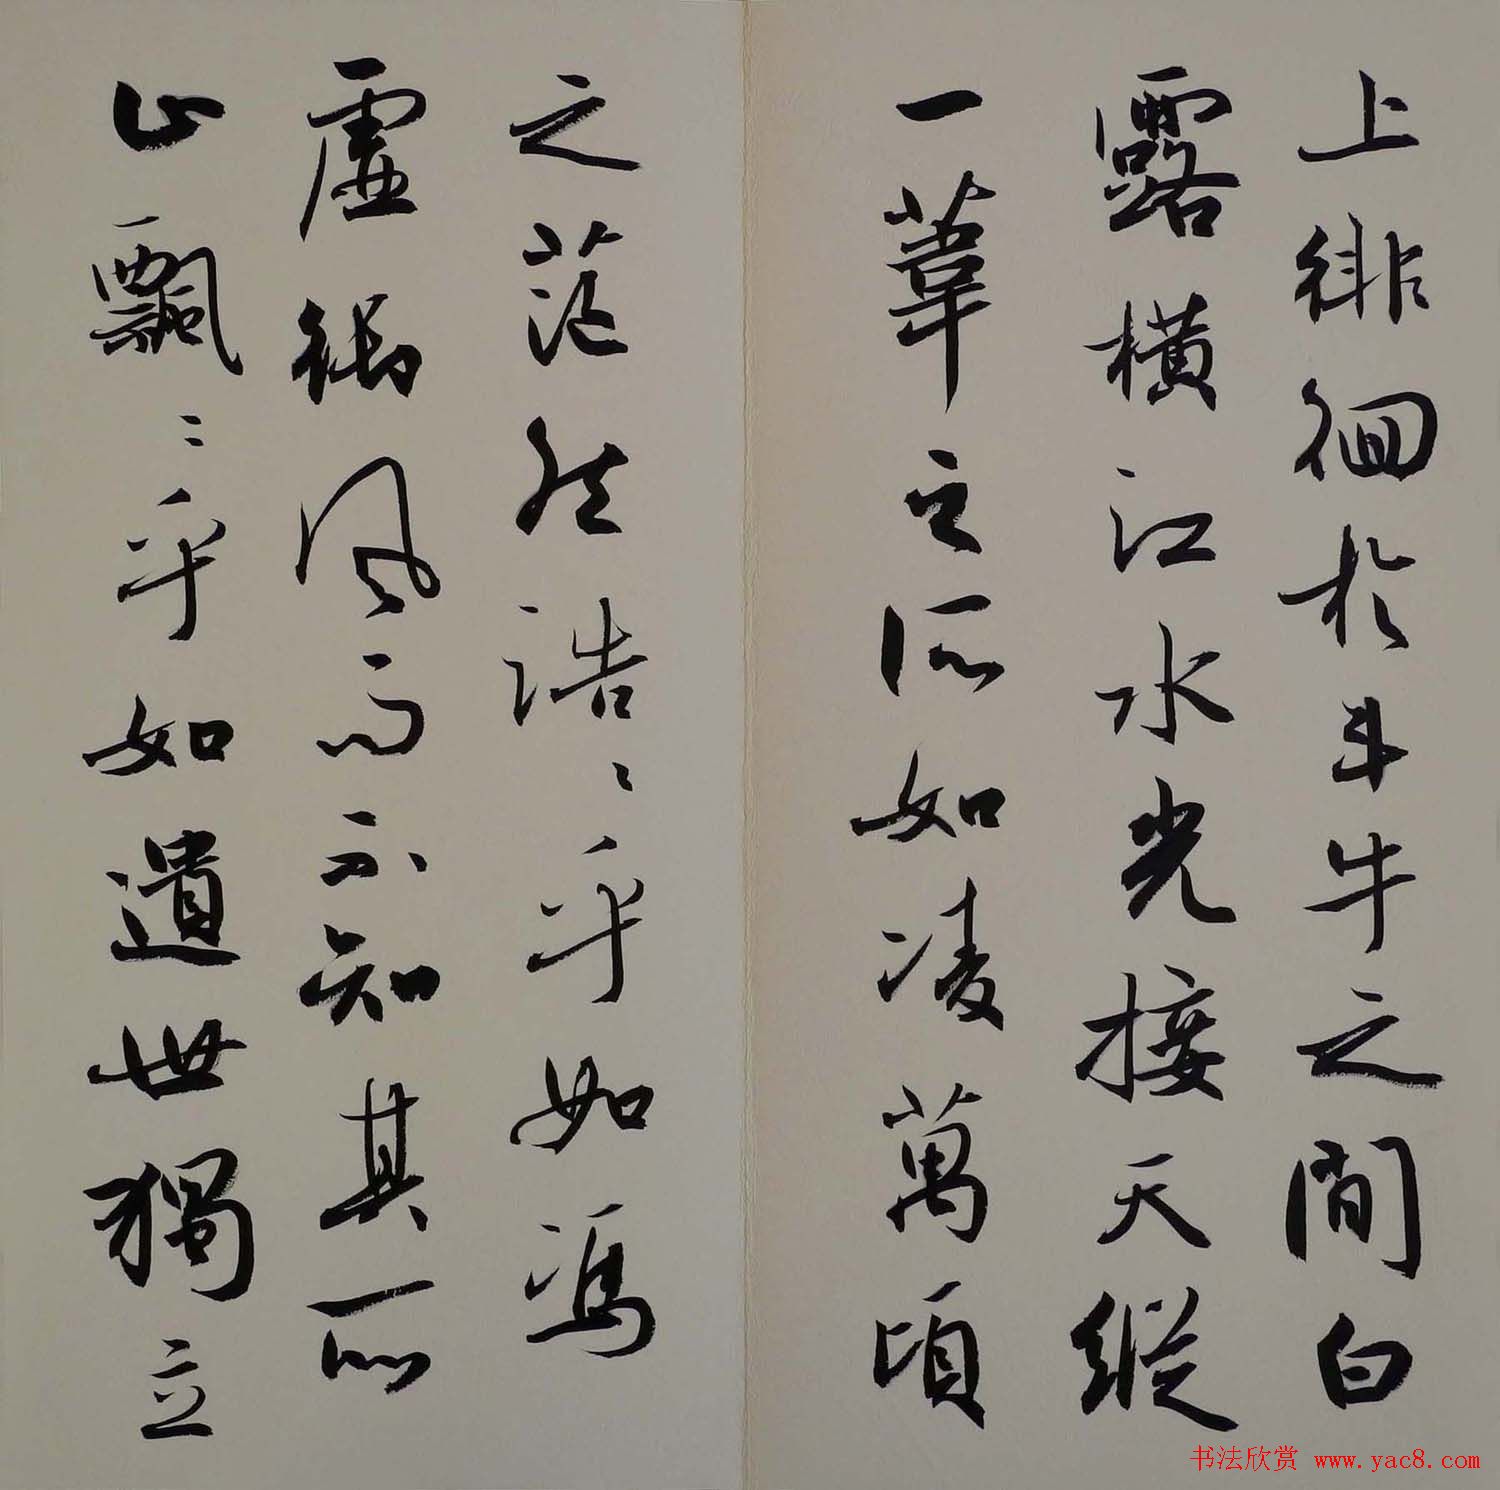 上徘徊於斗牛之間白
露橫江水光接天縱
一葦之所如凌萬頃
之茫然浩〻乎如馮
虛御風而不知其所
止飄〻乎如遺世獨立
书法欣赏 www.yac8.com